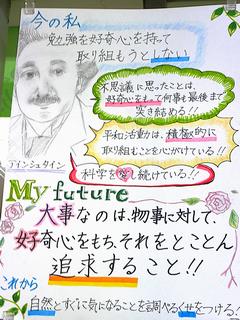 今の私
勉強を好奇心を持って
取り組もうとしない
不思議に思ったことは、
好奇心をもって何事も最後まで
突き詰める!!
平和活動は、積極的に
取りくむことを心がけている!!
アインシュタイン
科学を愛し続けている!!
My future
大事なのは、物事に対して、
好奇心をもち、それをとことん
追求すること!!
これから
自然とすぐに気になることを調べるくせをつける!